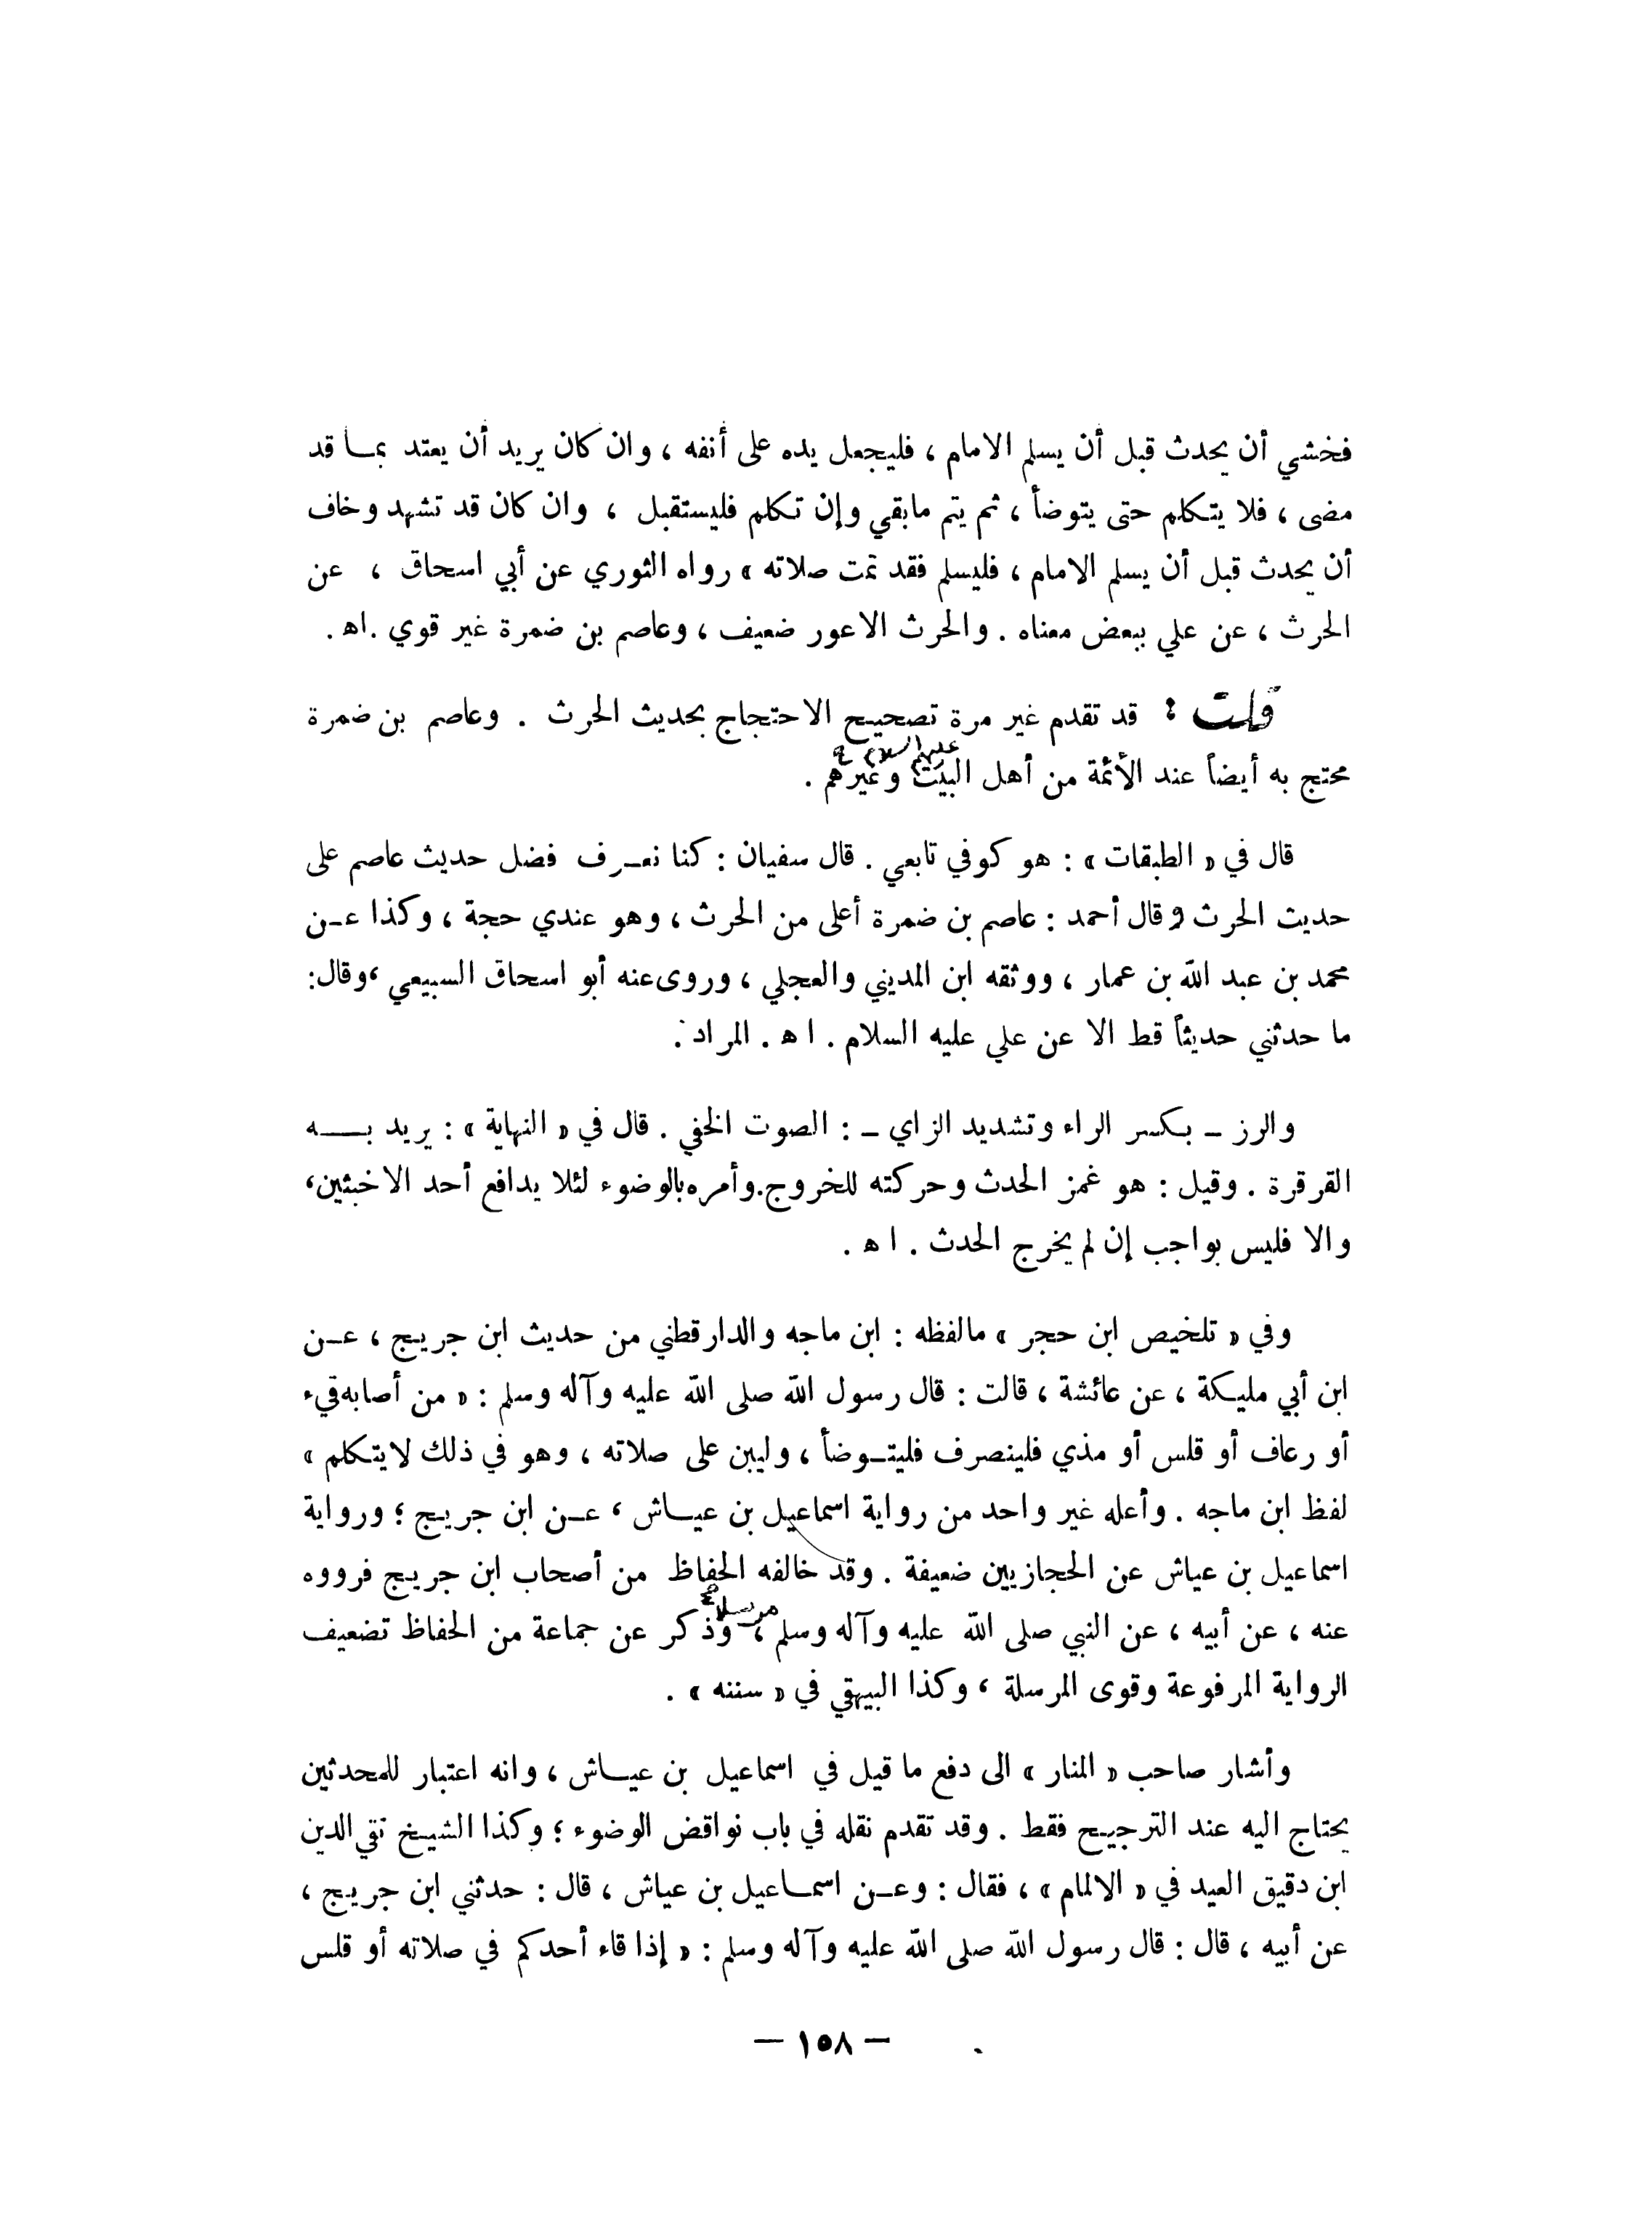 فخشي أن يحدث قبل أن يسلم الامام ، فليجعل يده على أنفه ، وان كان يريد أن يعتد بما قد
مضى ، فلا يتكلم حتى يتوضأ ، ثم يتم مابقي وإن تكلم فليستقبل ، وان كان قد تشهد وخاف
أن يحدث قبل أن يسلم الامام ، فليسلم فقد تمت صلاته » رواه الثوري عن أبي اسحاق ، عن
الحرث ، عن علي ببعض معناه . والحرث الاعور ضعيف ، وعاصم بن ضمرة غير قوي . اه .
قلت : قد تقدم غير مرة تصحيح الاحتجاج بحديث الحرث . وعاصم بن ضمرة
عليهم السلام
محتج به أيضاً عند الأئمة من أهل البيت وغيرهم .
قال في « الطبقات » : هو كوفي تابعي . قال سفيان : كنا نعرف فضل حديث عاصم على
حديث الحرث وقال أحمد : عاصم بن ضمرة أعلى من الحرث ، وهو عندي حجة ، وكذا عن
محمد بن عبد الله بن عمار ، ووثقه ابن المديني والعجلي ، وروى عنه أبو اسحاق السبيعي ، وقال :
ما حدثني حديثاً قط الا عن علي عليه السلام . اه . المراد .
والرز – بكسر الراء وتشديد الزاي – : الصوت الخفي . قال في « النهاية » : يريد به
القرقرة . وقيل : هو غمز الحدث وحركته للخروج . وأمره بالوضوء لئلا يدافع أحد الاخبثين ،
والا فليس بواجب إن لم يخرج الحدث . اه .
وفي « تلخيص ابن حجر » مالفظه : ابن ماجه والدارقطني من حديث ابن جريج ، عن
ابن أبي مليكة ، عن عائشة ، قالت : قال رسول الله صلى الله عليه وآله وسلم : « من أصابه قيء
أو رعاف أو قلس أو مذي فلينصرف فليتوضأ ، وليبن على صلاته ، وهو في ذلك لايتكلم »
لفظ ابن ماجه . وأعله غير واحد من رواية اسماعيل بن عياش ، عن ابن جريج ؛ ورواية
اسماعيل بن عياش عن الحجازيين ضعيفة . وقد خالفه الحفاظ من أصحاب ابن جريج فرووه
مرسلاً
عنه ، عن أبيه ، عن النبي صلى الله عليه وآله وسلم ، وذكر عن جماعة من الحفاظ تضعيف
الرواية المرفوعة وقوى المرسلة ، وكذا البيهقي في « سننه » .
وأشار صاحب « المنار » الى دفع ما قيل في اسماعيل بن عياش ، وانه اعتبار للمحدثين
يحتاج اليه عند الترجيح فقط . وقد تقدم نقله في باب نواقض الوضوء ؛ وكذا الشيخ تقي الدين
ابن دقيق العيد في « الالمام » ، فقال : وعن اسماعيل بن عياش ، قال : حدثني ابن جريج ،
عن أبيه ، قال : قال رسول الله صلى الله عليه وآله وسلم : « إذا قاء أحدكم في صلاته أو قلس
— ١٥٨ —